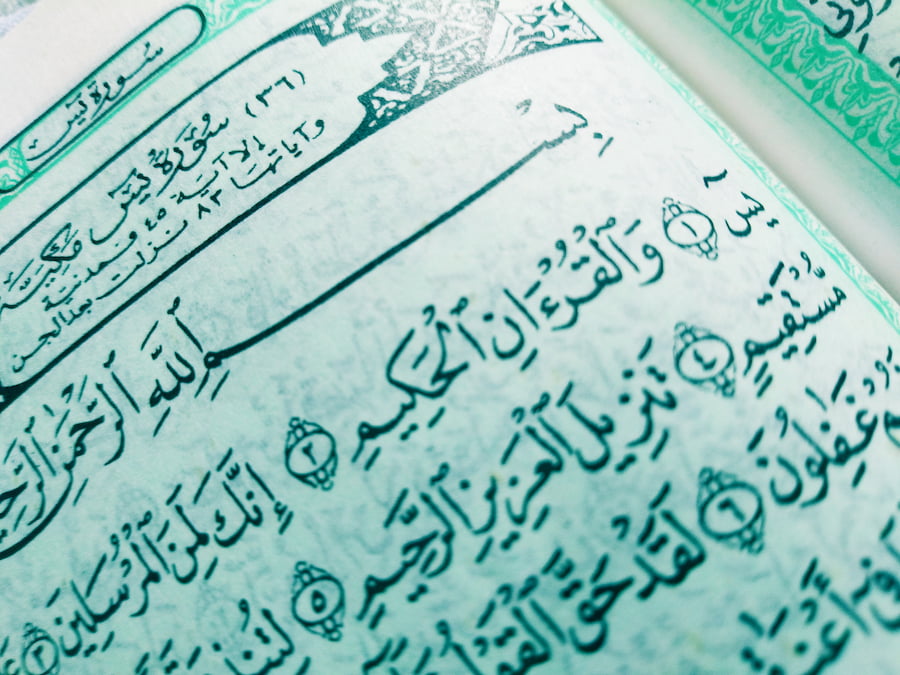 سورة يس
(٣٦) سُورَة يسٓ مَكيَّة
إلا آية ٤٥ فمدنية
وآياتها ٨٣ نزلت بعد الجن
بِسْمِ ٱللَّهِ ٱلرَّحْمَٰنِ ٱلرَّحِيمِ
يسٓ ١ وَٱلْقُرْءَانِ ٱلْحَكِيمِ ٢ إِنَّكَ لَمِنَ ٱلْمُرْسَلِينَ ٣
مُّسْتَقِيمٍ ٤ تَنزِيلَ ٱلْعَزِيزِ ٱلرَّحِيمِ ٥
غَٰفِلُونَ ٦ لَقَدْ حَقَّ ٱلْقَوْلُ